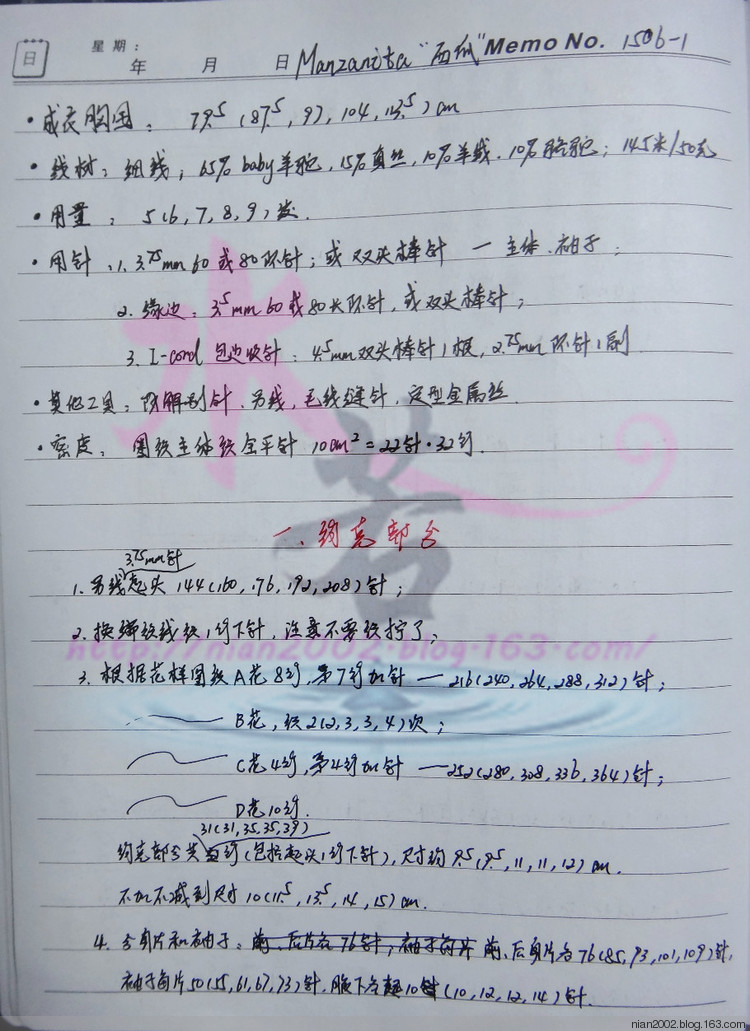 日 星期: 年 月 日 Manzanita “西瓜” Memo No. 1506-1
·成衣胸围: 79.5 (87.5, 97, 104, 113.5) cm
·线材: 细线; 65% baby羊驼, 15%真丝, 10%羊绒, 10%骆驼; 145米/50克
·用量: 5(6, 7, 8, 9)拨.
·用针: 1. 3.75mm 60或80环针; 或双头棒针 — 主体、袖子;
2. 缘边: 3.5mm 60或80长环针, 或双头棒针;
3. I-cord 包边收针: 4.5mm双头棒针1根, 2.75mm环针1副
·其他工具: 防解别针、另线, 毛线缝针, 定型金属丝.
·密度: 圈织主体织全平针 10cm²=22针·32行.
一、约克部分
3.75mm针
1. 另线起头 144(160, 176, 192, 208)针;
2. 换编织线织1行下针, 注意不要织拧了;
3. 根据花样图织A花8行, 第7行加针 — 216(240, 264, 288, 312)针;
B花, 织2(2, 3, 3, 4)次;
C花4行, 第4行加针 — 252(280, 308, 336, 364)针;
D花10行.
31(31, 35, 35, 39)
约克部分共行(包括起头1行下针), 尺寸约 9.5(9.5, 11, 11, 12) cm.
不加不减到尺寸 10(11.5, 13.5, 14, 15) cm.
4. 分身片和袖子: 前、后片各76针, 袖子每片 前、后身片各76(85, 93, 101, 109)针,
袖子每片50(55, 61, 67, 73)针, 腋下各起10针(10, 12, 12, 14)针.
http://nian2002.blog.163.com/
nian2002.blog.163.com